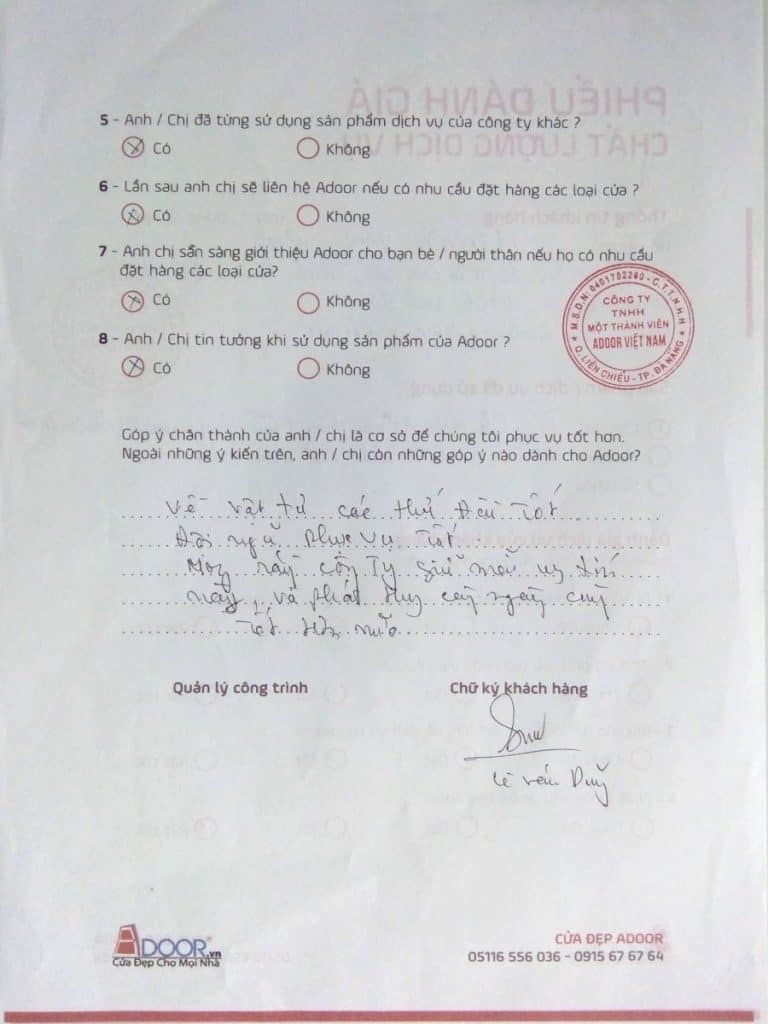 5 - Anh / Chị đã từng sử dụng sản phẩm dịch vụ của công ty khác ?
Có Không
6 - Lần sau anh chị sẽ liên hệ Adoor nếu có nhu cầu đặt hàng các loại cửa ?
Có Không
7 - Anh chị sẵn sàng giới thiệu Adoor cho bạn bè / người thân nếu họ có nhu cầu
đặt hàng các loại cửa?
Có Không
M.S.D.N: 0401782260 - C.T.T.N.H.H
CÔNG TY
TNHH
MỘT THÀNH VIÊN
ADOOR VIỆT NAM
Q. LIÊN CHIỂU - TP. ĐÀ NẴNG
8 - Anh / Chị tin tưởng khi sử dụng sản phẩm của Adoor ?
Có Không
Góp ý chân thành của anh / chị là cơ sở để chúng tôi phục vụ tốt hơn.
Ngoài những ý kiến trên, anh / chị còn những góp ý nào dành cho Adoor?
Về vật tư các thứ đều tốt
Đội ngũ phục vụ tốt
Mong rằng công ty giữ mãi uy tín
này, và phát huy càng ngày càng
tốt hơn nữa
Quản lý công trình Chữ ký khách hàng
Lê văn Duỹ
ADOOR.vn
Cửa Đẹp Cho Mọi Nhà
CỬA ĐẸP ADOOR
05116 556 036 - 0915 67 67 64
PHIẾU ĐÁNH GIÁ
CHẤT LƯỢNG DỊCH VỤ
Thông tin khách hàng